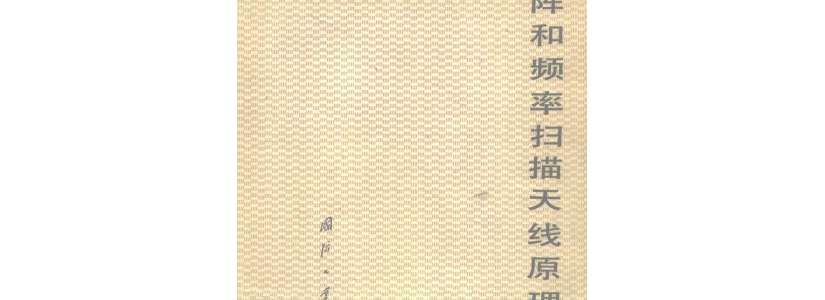 阵和频率扫描天线原理
国防工